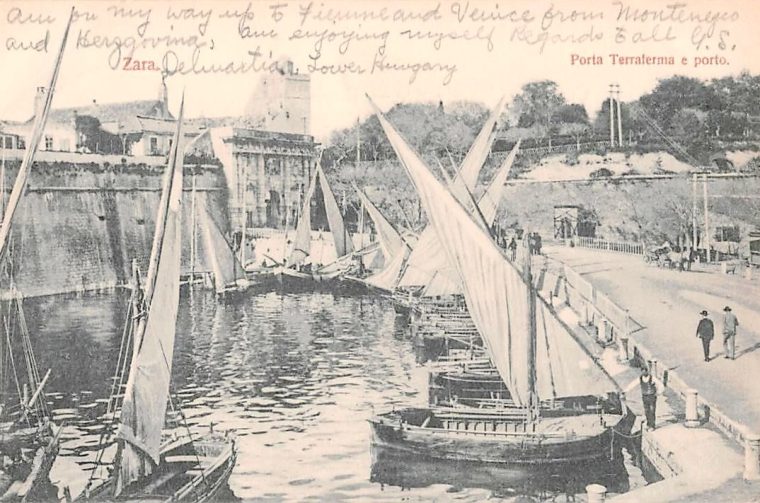 am on my way up to Fiemne and Venice from Montenegro
and Herzgovina, am enjoying myself Regards to all G.S.
Zara. Delmartia, Lower Hungary
Porta Terraferma e porto.